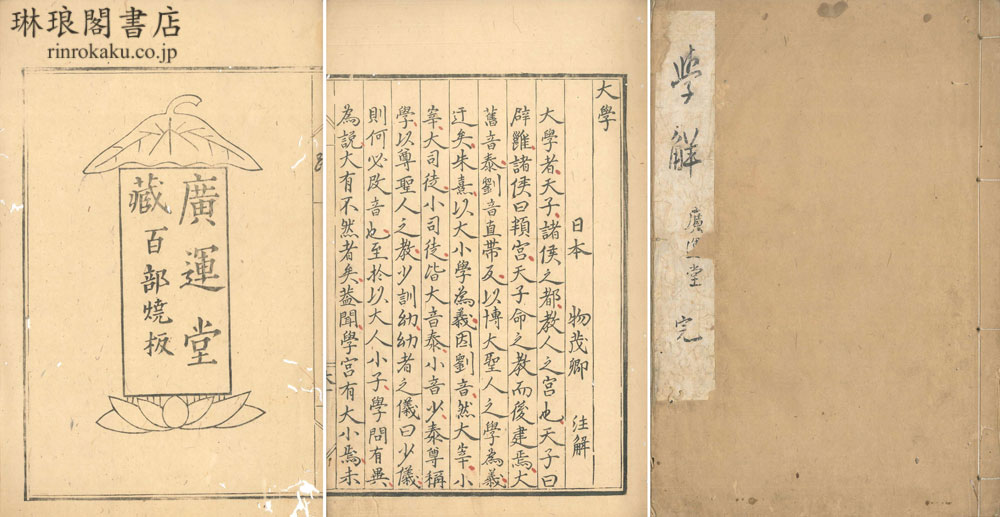 琳琅閣書店
rinrokaku.co.jp
廣運堂
藏百部燒板
大學
日本 物茂卿 注解
大學者天子諸侯之都教人之宮也天子曰
辟雝諸侯曰頖宮天子命之教而後建焉大
舊音泰劉音直帶反以博大聖人之學為義
迂矣朱熹以大小學為義因劉音然大宰小
宰大司徒小司徒皆大音泰小音少泰尊稱
學以尊聖人之教少訓幼幼者之儀曰少儀
則何必改音也至於以大人小子學問有異
為說大有不然者矣蓋聞學宮有大小焉未
学解
廣運堂 完